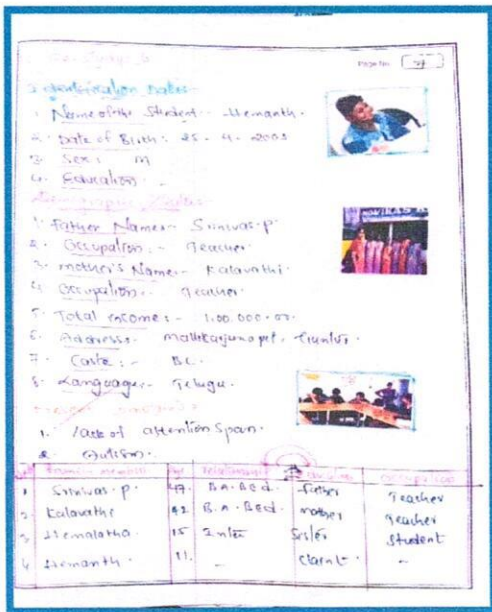 Case Study: 6
Page No. 27
Identification Data:-
1. Name of the Student:- Hemanth.
2. Date of Birth: 25 - 4 - 2003
3. Sex: M
4. Education: -
Demographic Data:-
1. Father Name:- Srinivas.P
2. Occupation:- Teacher
3. Mother's Name:- Kalavathi.
4. Occupation:- Teacher.
5. Total income:- 1,00,000.00.
6. Address:- Mallikarjunapet, Guntur.
7. Caste:- BC.
8. Languages- Telugu.
1. lack of attention Span.
2. Autism.
Family members Age Relationship Occupation
1 Srinivas.P. 47. B.A.BEd. Father Teacher
2. Kalavathi 42 B.A.BEd. mother Teacher
3 Hemalatha. 15 Inter Sister Student
4 Hemanth. 11. - Client. -